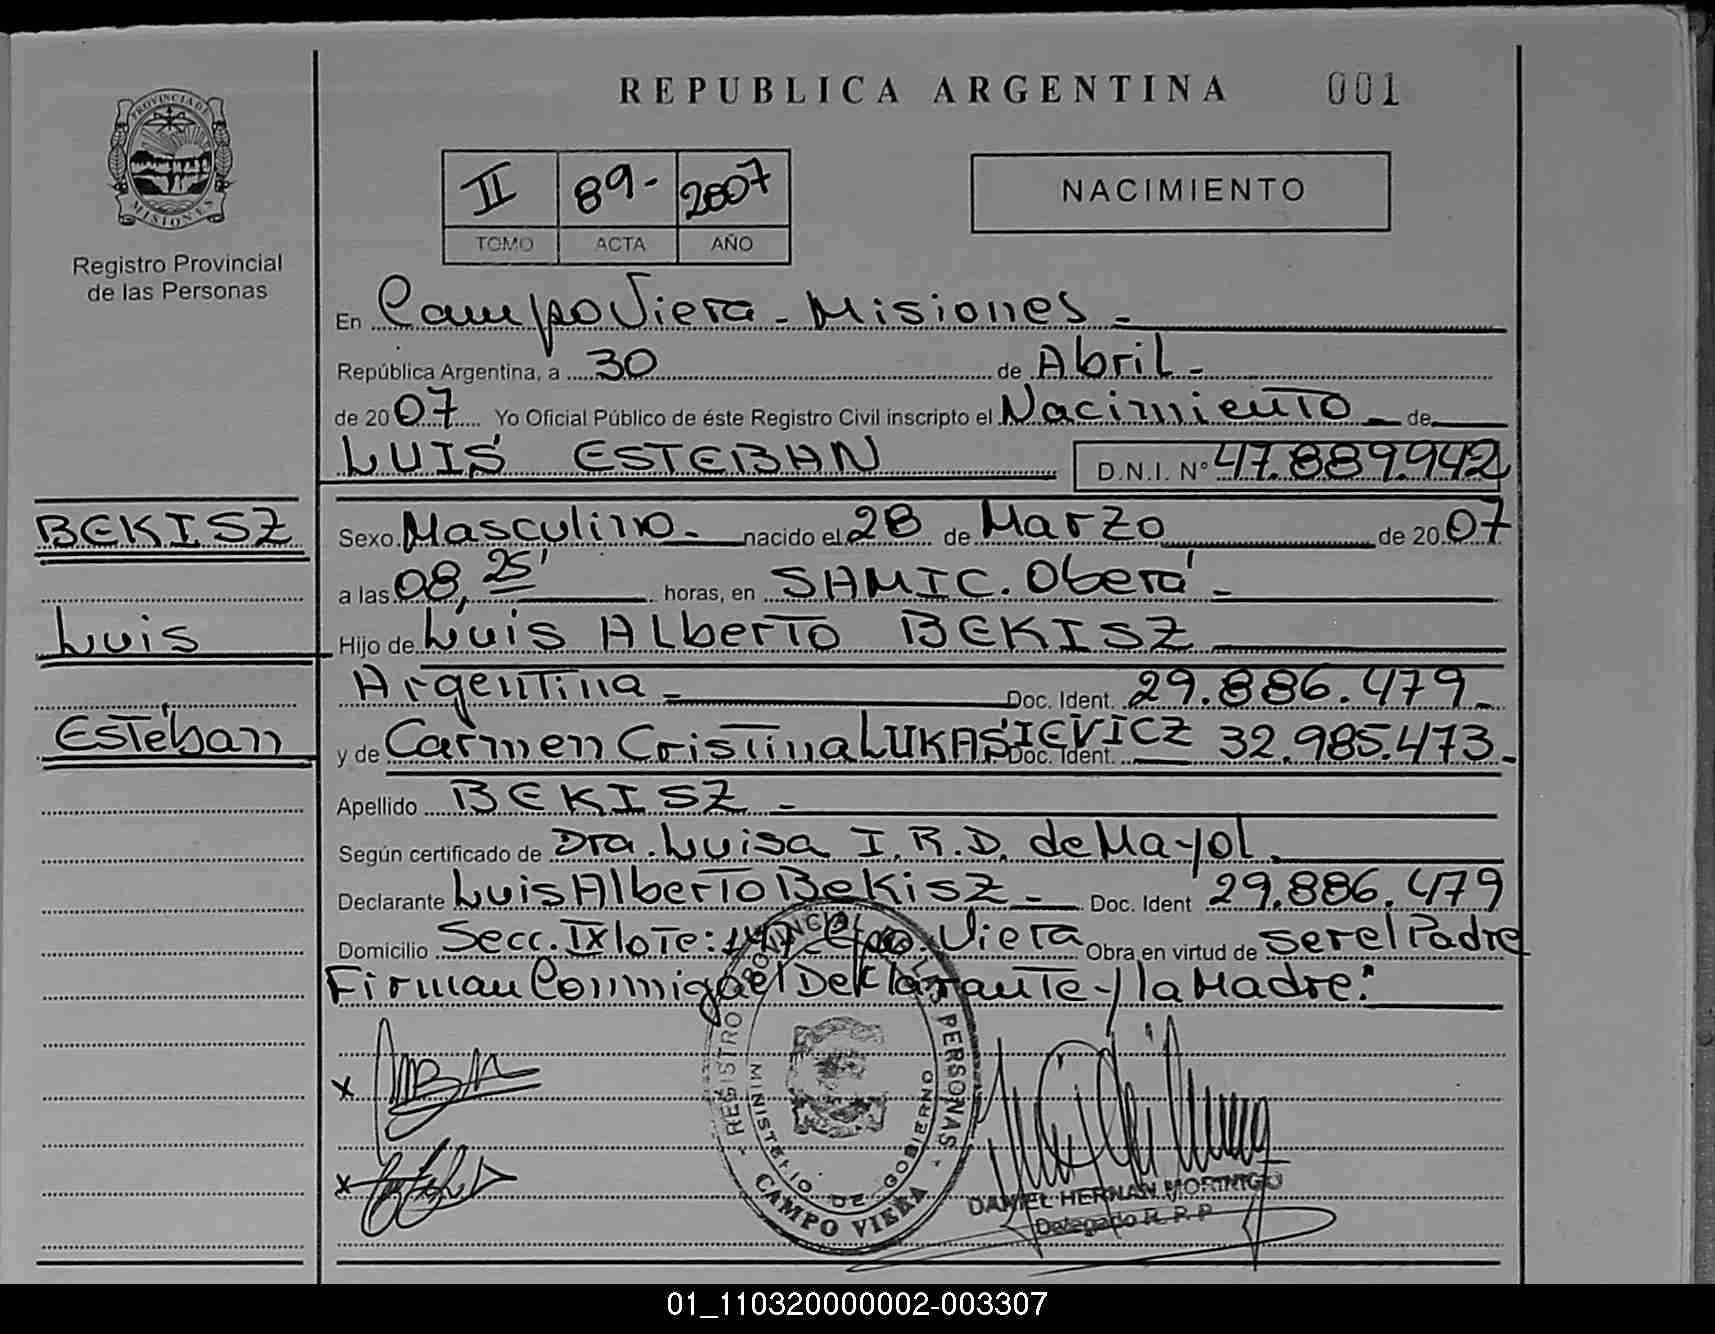 REPUBLICA ARGENTINA 001
PROVINCIA DE MISIONES
Registro Provincial
de las Personas
II 89- 2007
TOMO ACTA AÑO
NACIMIENTO
En Campo Viera - Misiones -
República Argentina, a 30 de Abril -
de 2007 Yo Oficial Público de éste Registro Civil inscripto el Nacimiento - de
LUIS ESTEBAN D.N.I. Nº 47.889.942
BEKISZ
Luis
Esteban
Sexo Masculino - nacido el 28 de Marzo de 2007
a las 08,25' horas, en SAMIC. Oberá -
Hijo de Luis Alberto BEKISZ
Argentina - Doc. Ident. 29.886.479 -
y de Carmen Cristina LUKASIEVICZ Doc. Ident. 32.985.473 -
Apellido BEKISZ -
Según certificado de Dra. Luisa I. R. D. de Mayol.
Declarante Luis Alberto Bekisz - Doc. Ident 29.886.479
Domicilio Secc. IX lote: Cpo. Viera Obra en virtud de ser el Padre
Firman Conmigo el Declarante y la Madre:
x
x
REGISTRO PROVINCIAL DE LAS PERSONAS -
MINISTERIO DE GOBIERNO
CAMPO VIERA
DANIEL HERNAN MORINIGO
Delegado R. P. P
01_110320000002-003307